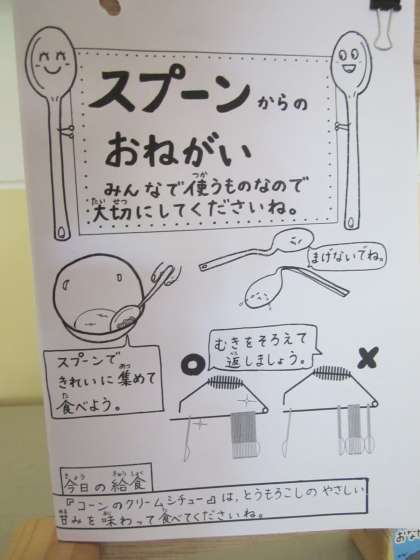 スプーンからの
おねがい
みんなで使うものなので
大切にしてくださいね。
まげないでね。
スプーンで
きれいに集めて
食べよう。
むきをそろえて
返しましょう。
今日の給食
『コーンのクリームシチュー』は、とうもろこしのやさしい
甘みを味わって食べてくださいね。